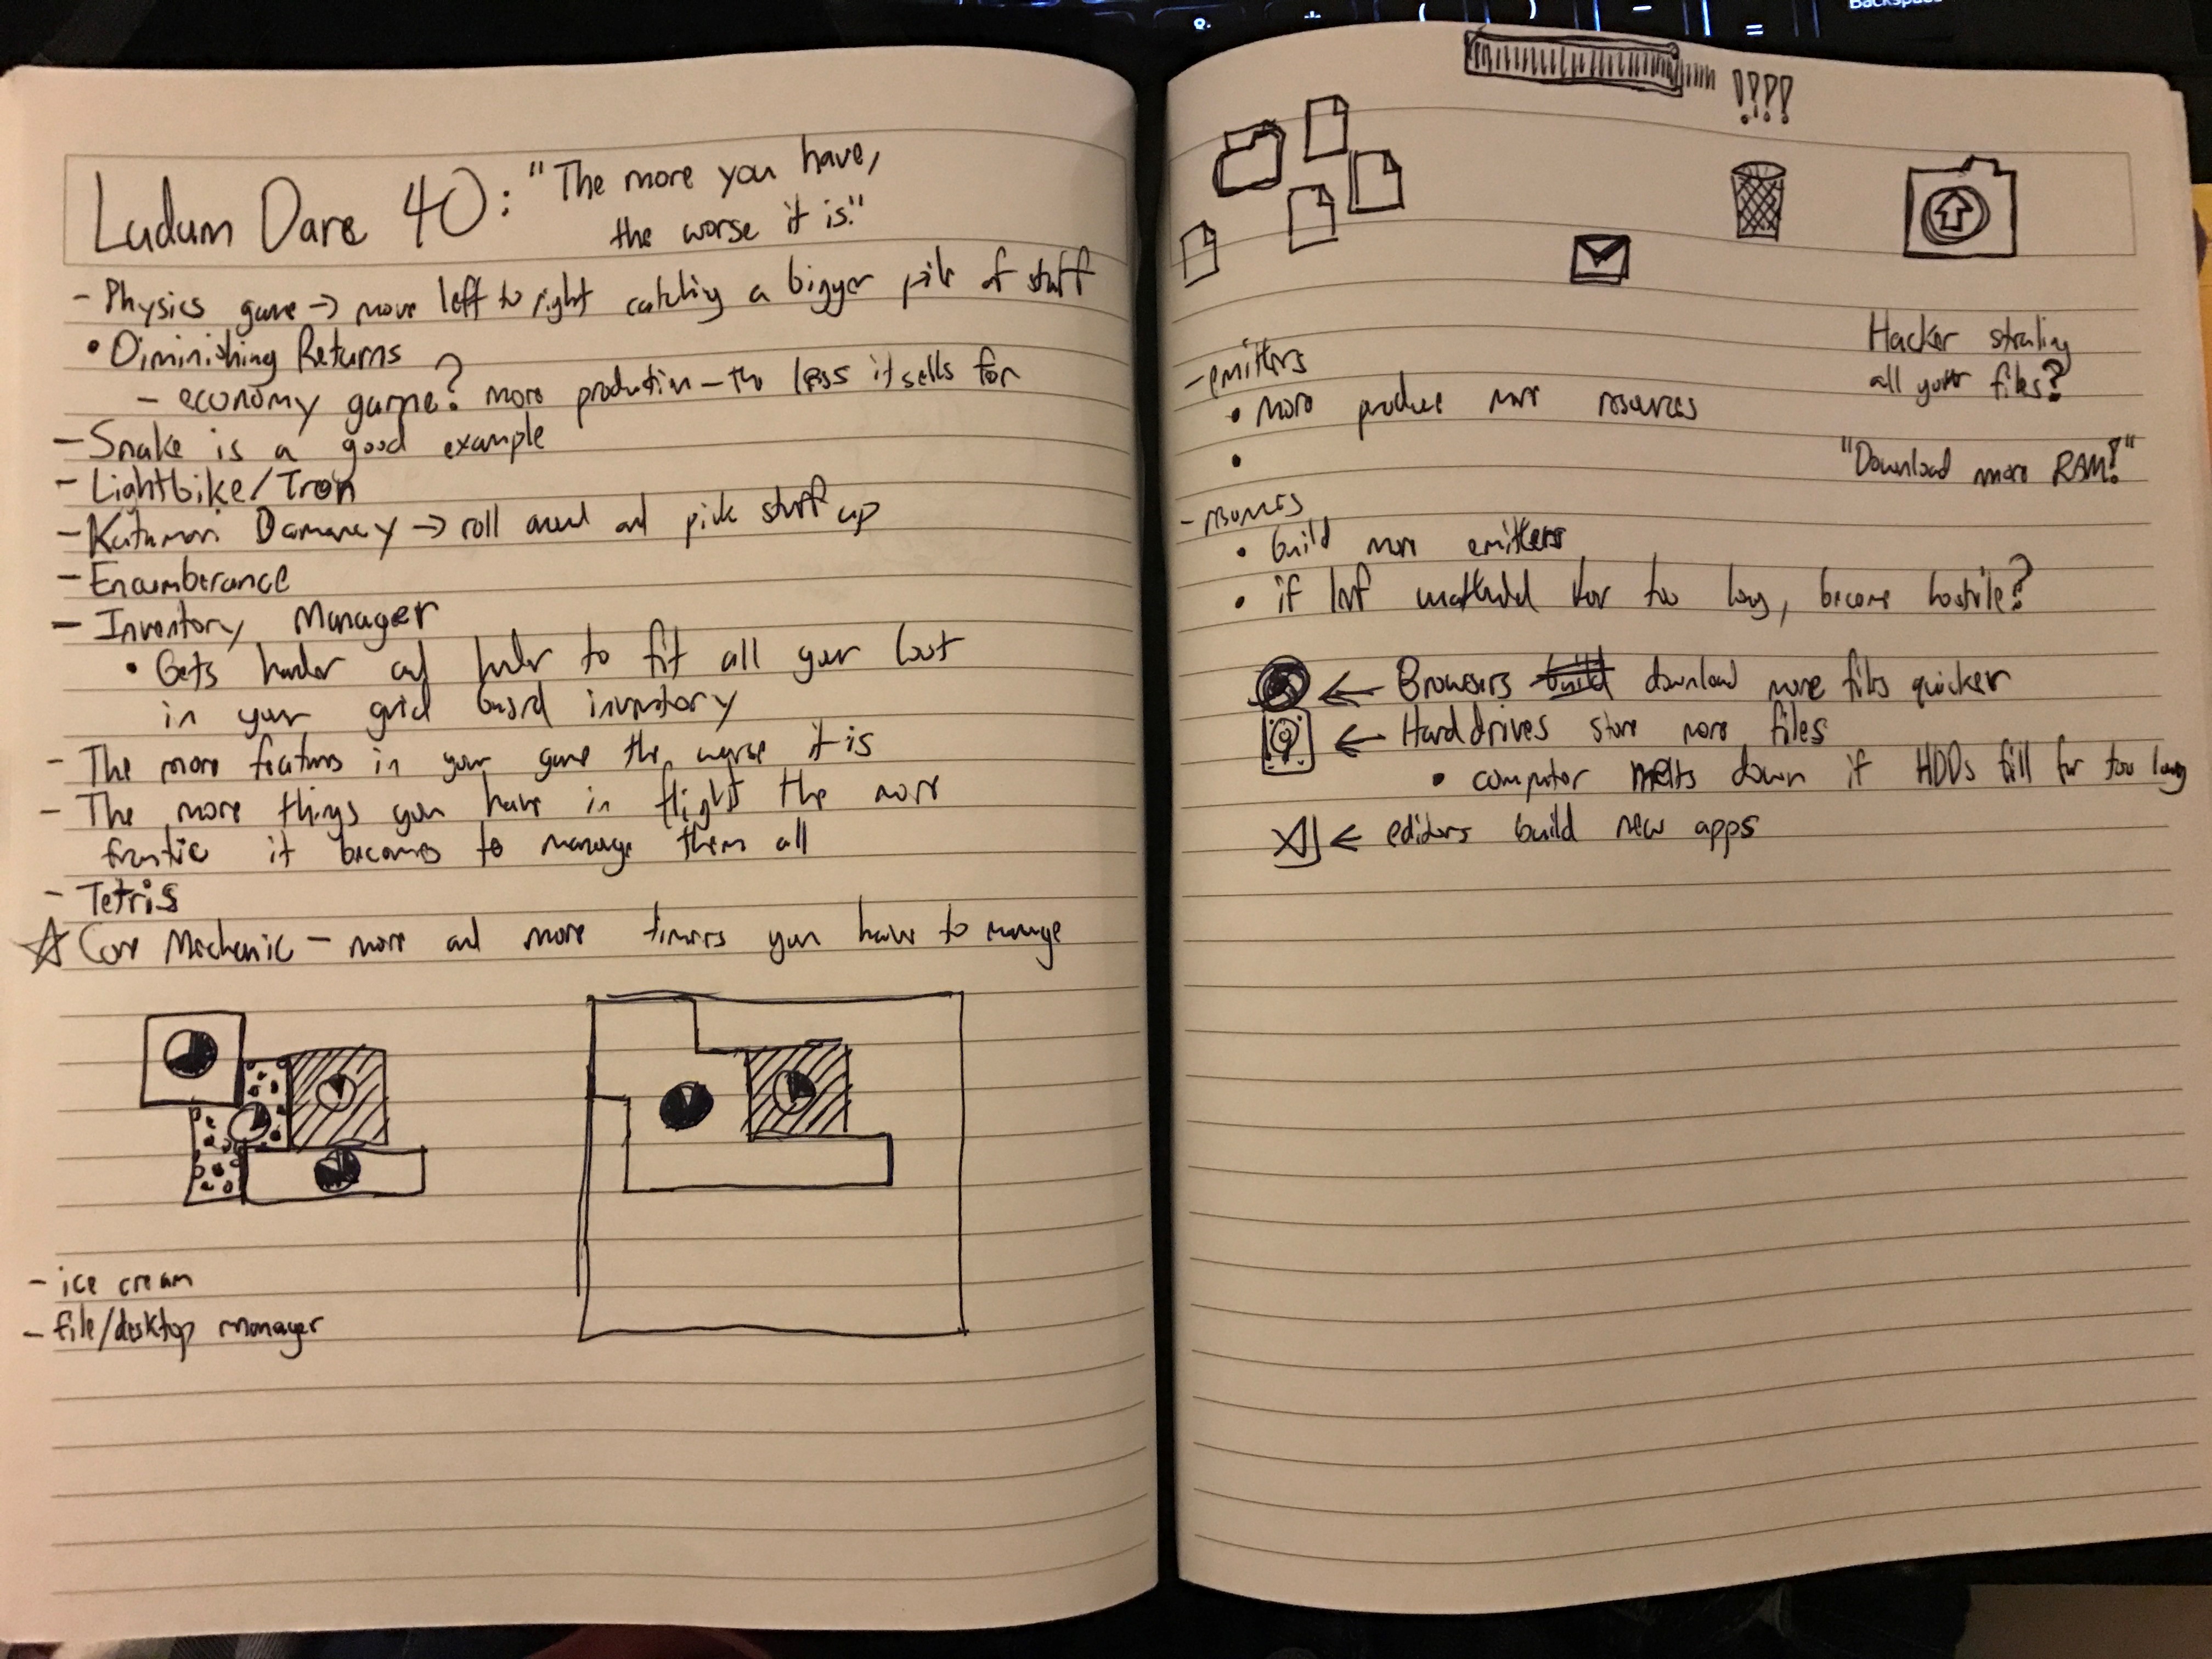 Backspace
& + ( ) - =
Ludum Dare 40: "The more you have,
the worse it is."
- Physics game → move left to right catching a bigger pile of stuff
• Diminishing Returns
- economy game? more production - the less it sells for
- Snake is a good example
- Lightbike/Tron
- Katamari Damancy → roll around and pick stuff up
- Encumberance
- Inventory Manager
• Gets harder and harder to fit all your loot
in your grid based inventory
- The more features in your game the worse it is
- The more things you have in flight the more
frantic it becomes to manage them all
- Tetris
☆ Core Mechanic - more and more timers you have to manage
- ice cream
- file/desktop manager
!!!!
Hacker stealing
all your files?
"Download more RAM!"
- emitters
• more produce more resources
•
- resources
• build more emitters
• if left unattended for too long, become hostile?
← Browsers build download more files quicker
← Hard drives store more files
• computer melts down if HDDs fill for too long
← editors build new apps